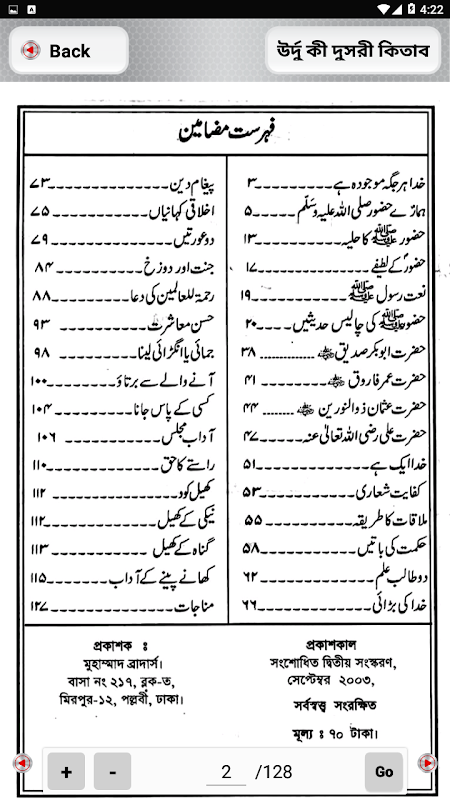 4:22
Back
উর্দু কী দুসরী কিতাব
فہرست مضامین
خدا ہر جگہ موجود ہے ـــــــ ۳
ہمارے حضور صلی اللہ علیہ وسلم ـــــــ ۵
حضور ﷺ کا حلیہ ـــــــ ۱۳
حضورؐ کے لطیفے ـــــــ ۱۷
نعت رسول ﷺ ـــــــ ۱۹
حضور ﷺ کی چالیس حدیثیں ـــــــ ۲۰
حضرت ابوبکر صدیق ؓ ............ ۳۸
حضرت عمر فاروق ؓ ......... ۴۱
حضرت عثمان ذوالنورین ؓ ........ ۴۴
حضرت علی رضی اللہ تعالیٰ عنہ ـــــــ ۴۷
خدا ایک ہے ـــــــ ۵۱
کفایت شعاری ـــــــ ۵۳
ملاقات کا طریقہ ـــــــ ۵۵
حکمت کی باتیں ـــــــ ۵۸
دو طالب علم ـــــــ ۶۲
خدا کی بڑائی ـــــــ ۶۶
پیغام دین ـــــــ ۷۳
اخلاقی کہانیاں ـــــــ ۷۵
دو عورتیں ـــــــ ۷۹
جنت اور دوزخ ـــــــ ۸۴
رحمۃ للعالمین کی دعا ـــــــ ۸۸
حسن معاشرت ـــــــ ۹۳
جمائی یا انگڑائی لینا ـــــــ ۹۸
آنے والے سے برتاؤ ـــــــ ۱۰۰
کسی کے پاس جانا ـــــــ ۱۰۴
آداب مجلس ـــــــ ۱۰۶
راستے کا حق ـــــــ ۱۱۰
کھیل کود ـــــــ ۱۱۲
نیکی کے کھیل ـــــــ ۱۱۲
گناہ کے کھیل ـــــــ ۱۱۳
کھانے پینے کے آداب ـــــــ ۱۱۵
مناجات ـــــــ ۱۲۷
প্রকাশক :
মুহাম্মাদ ব্রাদার্স।
বাসা নং ২১৭, ব্লক-ত,
মিরপুর-১২, পল্লবী, ঢাকা।
প্রকাশকাল
সংশোধিত দ্বিতীয় সংস্করণ,
সেপ্টেম্বর ২০০৩,
সর্বস্বত্ত্ব সংরক্ষিত
মূল্য : ৭০ টাকা।
+ - 2 /128 Go